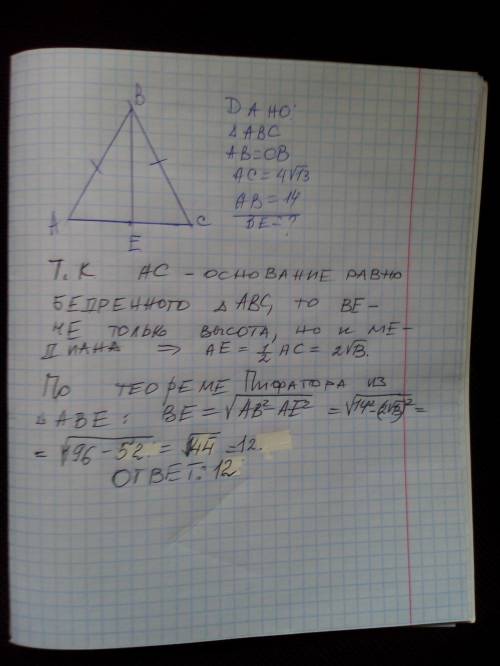 B
A
C
E
ДАНО:
△ABC
AB=OB
AC=4√13
AB=14
BE=?
Т.К AC - ОСНОВАНИЕ РАВНО
БЕДРЕННОГО △ABC, ТО BE-
НЕ ТОЛЬКО ВЫСОТА, НО И МЕ-
ДИАНА ⇒ AE=1/2 AC=2√13.
ПО ТЕОРЕМЕ ПИФАГОРА ИЗ
△ABE: BE=√AB²-AE² =√14²-(2√13)²=
=√196-52=√144=12.
ОТВЕТ:12